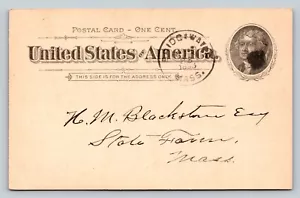 POSTAL CARD – ONE CENT.
United States of America.
THIS SIDE IS FOR THE ADDRESS ONLY.
MASS.
H. M. Blackstone Esq
State Farm,
Mass.